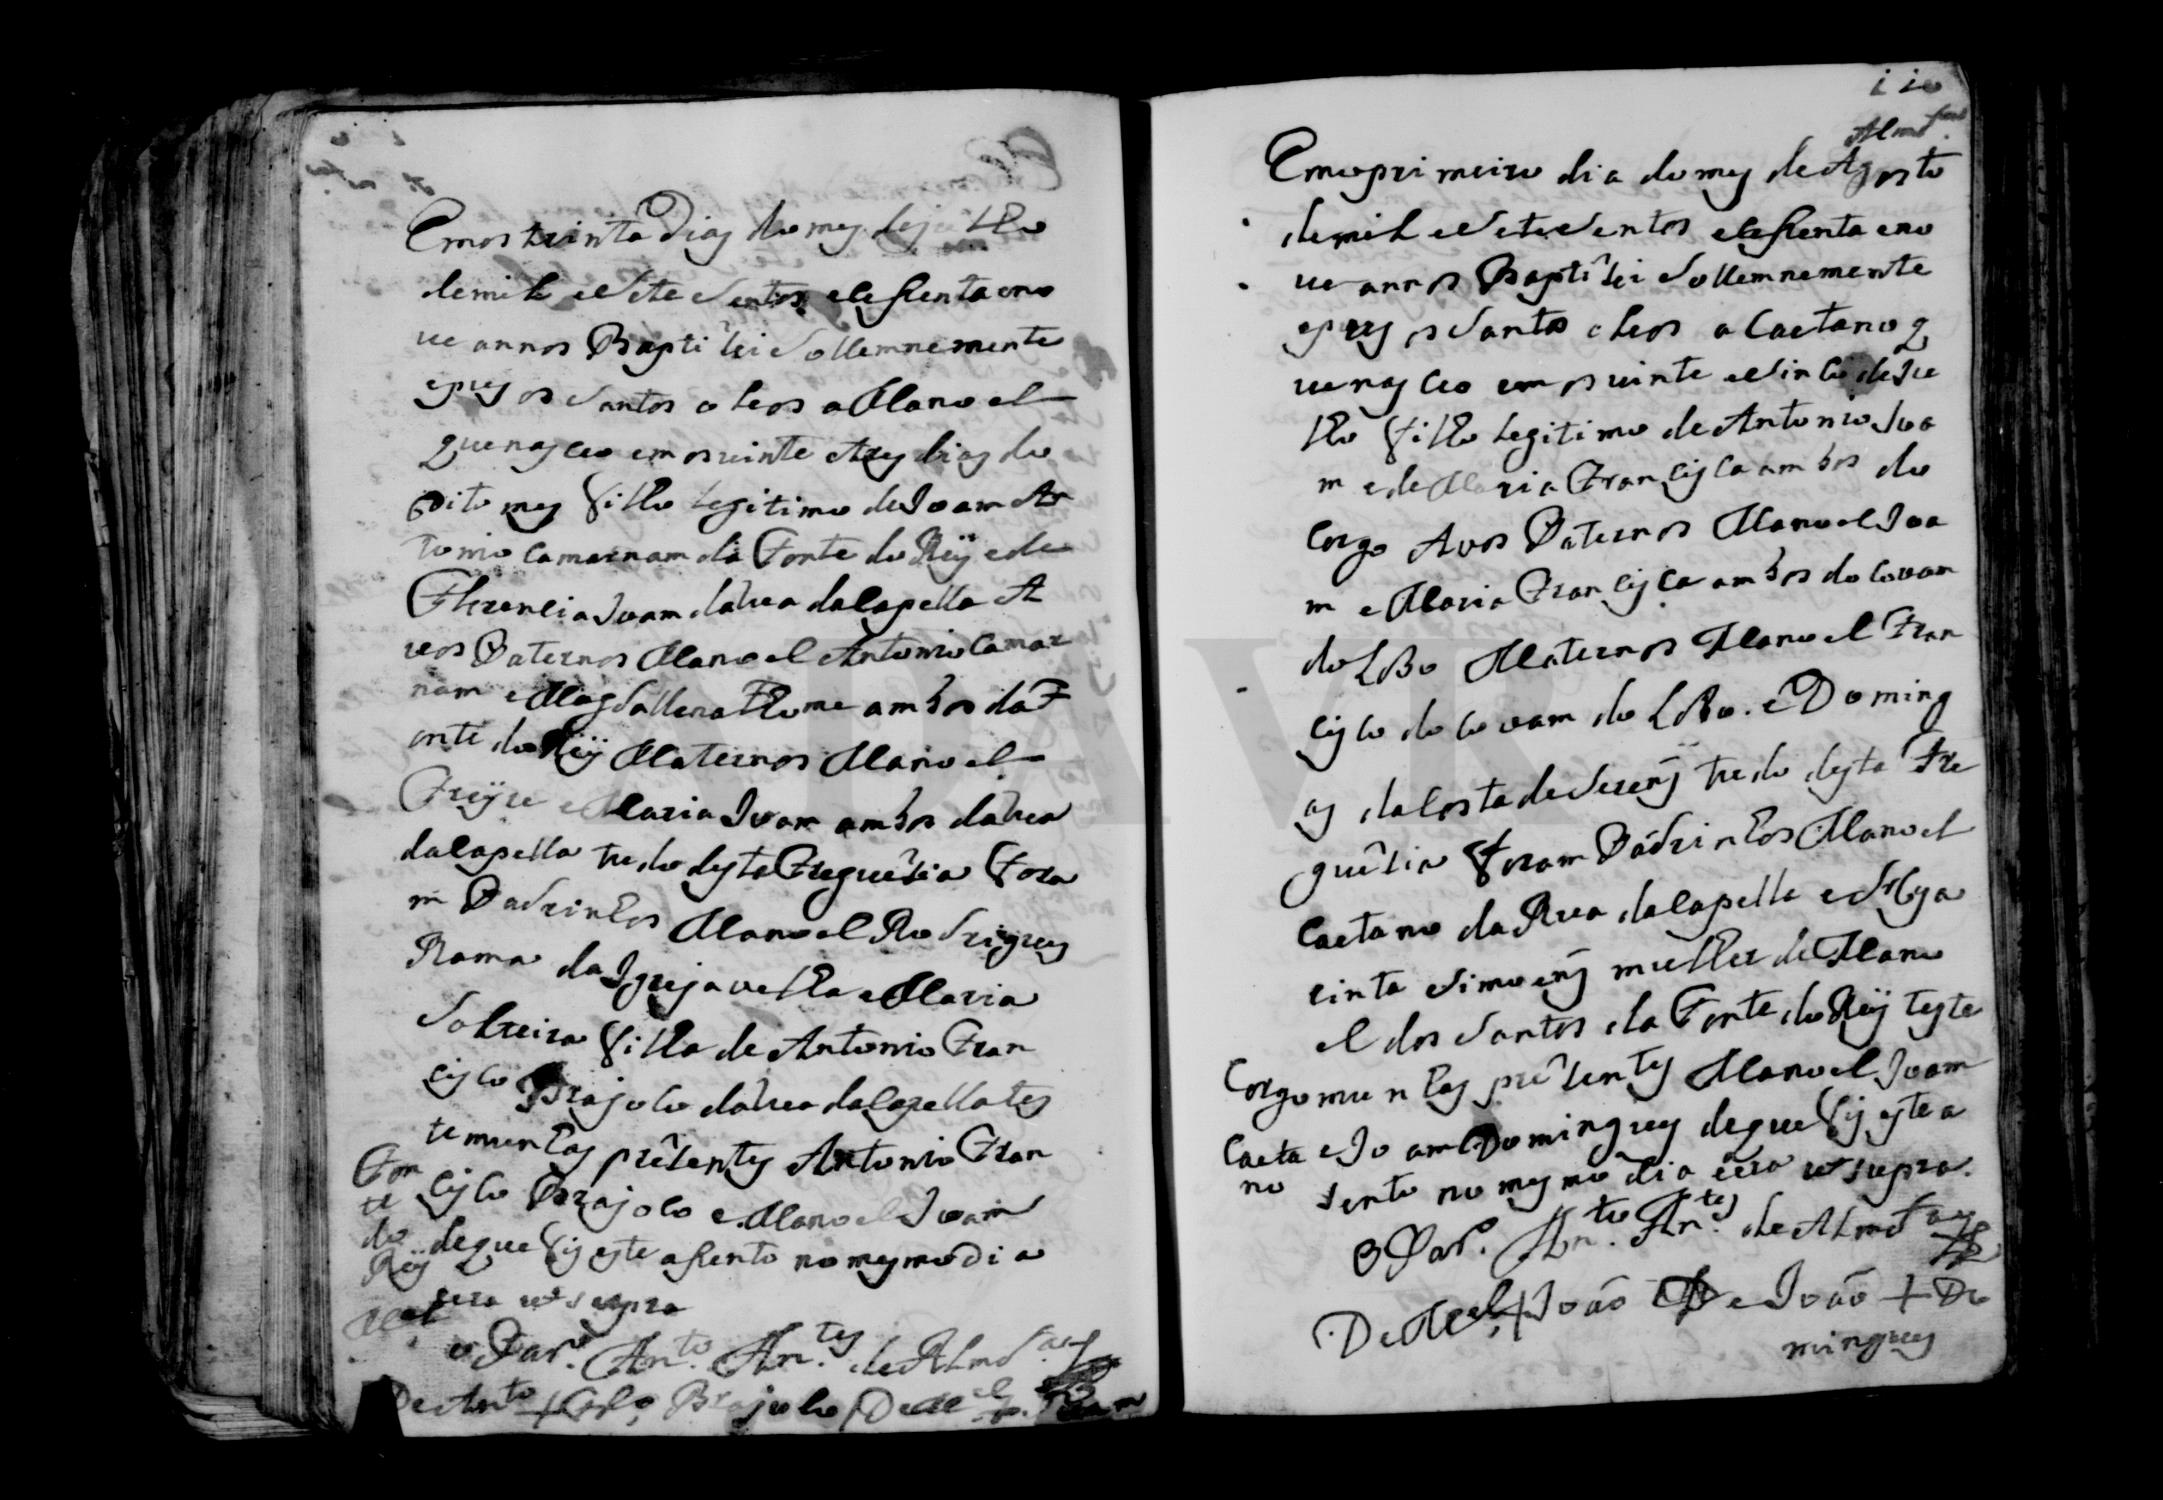 Emos trinta Dias do mes de julho
de mil e Setesentos e sesenta eno
ve annos Baptizei Sollemnemente
e pus os Santos oleos a Manoel
que nasceo em os vinte e tres dias do
Dito mes filho legitimo de Joam An
tonio Camarnam da Fonte do Reÿ e de
Florencia Joam da rua da Capella A
vos Paternos Manoel Antonio Camar
nam e Magdallena Thome ambos da F
onte do Reÿ Maternos Manoel
Freÿre e Maria Joam ambos da rua
da Capella tudo desta Freguezia Fora
m Padrinhos Manoel Rodrigues
Rama da Igreja velha e Maria
Solteira filha de Antonio Fran
cisco Brajolo da rua da Capella tes
temunhas prezentes Antonio Fran
cisco Brajolo e Manoel Joam
de que fis este asento no mesmo Dia
era ut supra
o Par.º An.to An.tes de Almd.a
De An.to + Fr.co Brajolo De M.el + Joam
Fon
te
do
Reÿ
110
Almd.a
Em o primeiro dia do mes de Agosto
de mil e Setesentos e sesenta eno
ve annos Baptizei Sollemnemente
e pus os Santos oleos a Caetano q
ue nasceo em os vinte e Sinco de Ju
lho filho legitimo de Antonio Joa
m e de Maria Francisca ambos do
Corgo Avos Paternos Manoel Joa
m e Maria Francisca ambos do Covam
do Lobo Maternos Manoel Fran
cisco do Covam do Lobo. e Doming
as da Costa de tudo desta Fre
guezia Foram Padrinhos Manoel
Caetano da Rua da Capella e
cinta Simoens mulher de Mano
el dos Santos da Fonte do Reÿ teste
munhas prezentes Manoel Joam
e Joam Domingues de que fis este a
sento no mesmo dia e era ut supra.
O Par.º An.to An.tes de Almd.a
De M.el + João De João + Do
mingues
Corgo
Caeta
no